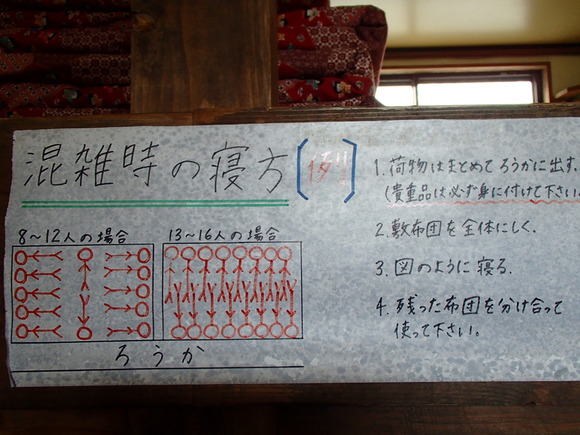 混雑時の寝方[例]
8~12人の場合
13~16人の場合
ろうか
1. 荷物はまとめてろうかに出す.
(貴重品は必ず身に付けて下さい.
2. 敷布団を全体にしく.
3. 図のように寝る.
4. 残った布団を分け合って
使って下さい。